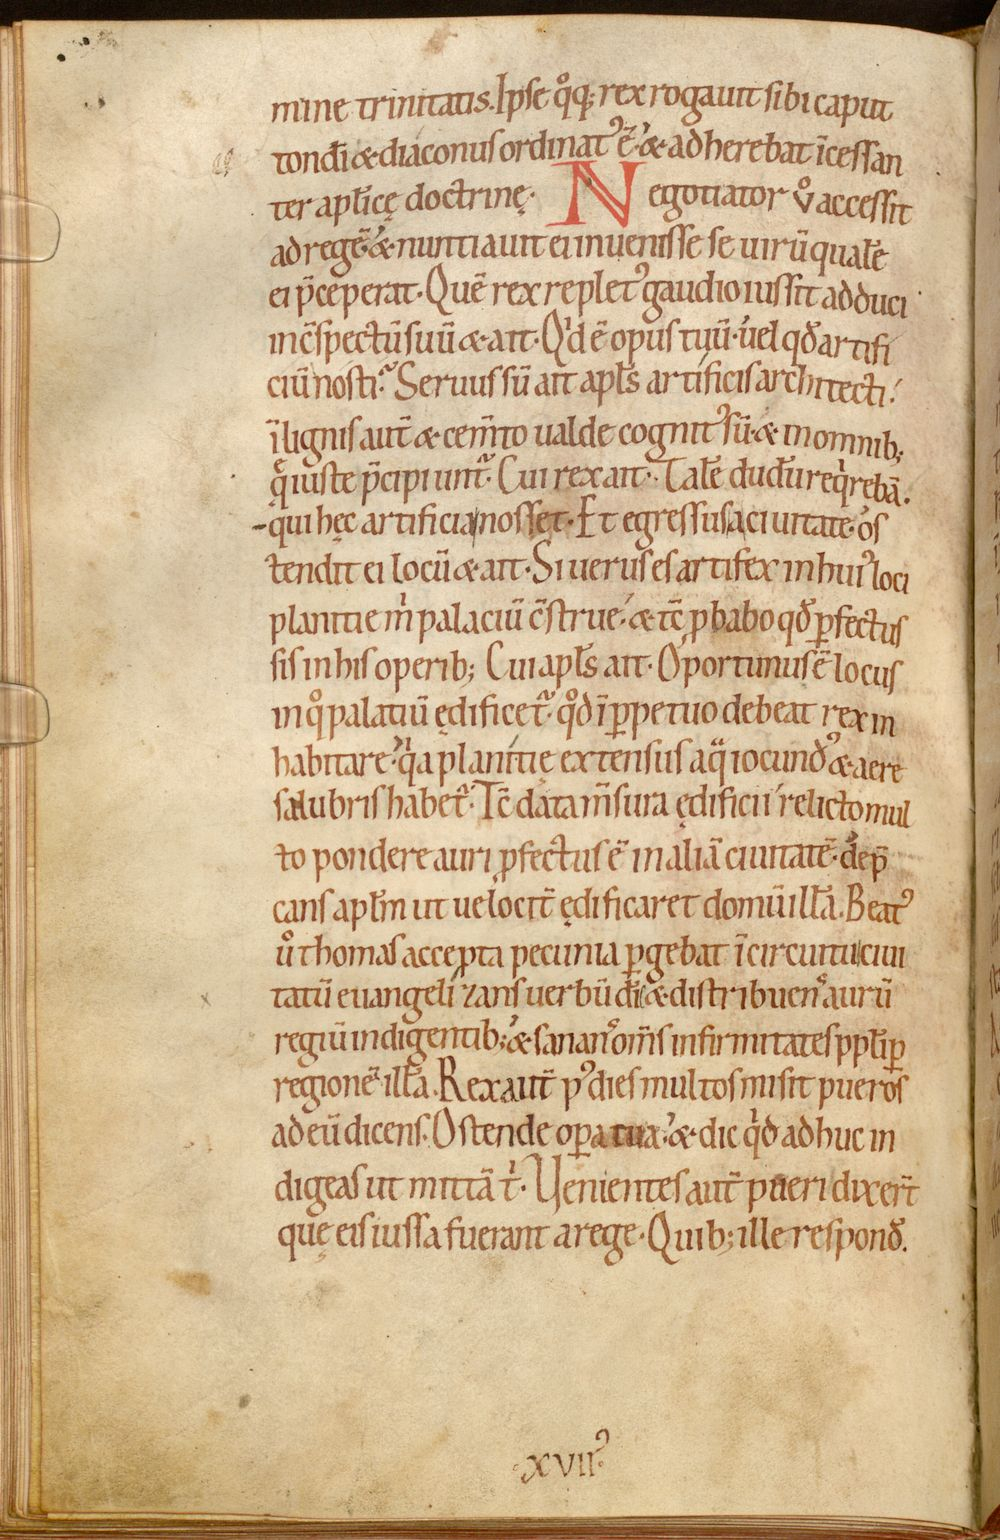 mine trinitatis. Ipse qͦq; rex rogauit sibi caput
tondi̅ & diaconus ordinatꝰ e̅. & adherebat i̅cessan
ter apl̅icę doctrinę. Negotiator uͦ accessit
ad rege̅ & nuntiauit ei inuenisse se uiru̅ quale̅
ei p̅ceperat. Que̅ rex repletꝰ gaudio iussit adduci
in c̅spectu̅ suu̅ & ait. Qͥd e̅ opus tuu̅. uel qđ artifi
ciu̅ nosti? Seruus su̅ ait apl̅s artificis architecti.
i̅ lignis aut̅ & cem̅to ualde cognitꝰ su̅. & in omnib;
q̨ iuste p̅cipiunt᷑. Cui rex ait. Tale̅ dudu̅ reqͥreba̅.
qui hęc artificia nosset. Et egressus a ciuitate. os
tendit ei locu̅ & ait. Si uerus es artifex in huiꝰ loci
planitie mͥ palaciu̅ c̅strue. & tc̅ ꝓbabo qđ ꝑfectus
sis in his operib; Cui apl̅s ait. Oportunus e̅ locus
in qͦ palatiu̅ ędificet᷑. qͦd i̅ ꝑpetuo debeat rex in
habitare. qͥa planitię extensus aq̅ iocundꝰ & aere
salubris habet᷑. Tc̅ data m̅sura ędificii relicto mul
to pondere auri ꝓfectus e̅ in alia̅ ciuitate̅. dep̅
cans apl̅m ut uelocit̅ ędificaret domu̅ illa̅. Beatꝰ
uͦ thomas accepta pecunia ꝑgebat i̅ circuitu ciui
tatu̅ euangelizans uerbu̅ di̅ & distribuenꝰ auru̅
regiu̅ indigentib; & sananꝰ om̅s infirmitates ppl̅i ꝑ
regione̅ illa̅. Rex aut̅ pꝰ dies multos misit pueros
ad eu̅ dicens. Ostende oꝑa tua. & dic qͥd adhuc in
digeas ut mitta̅ tͥ. Uenientes aut̅ pueri dixer̅t
quę eis iussa fuerant a rege. Quib; ille respond̅.
.xvii.ꝰ